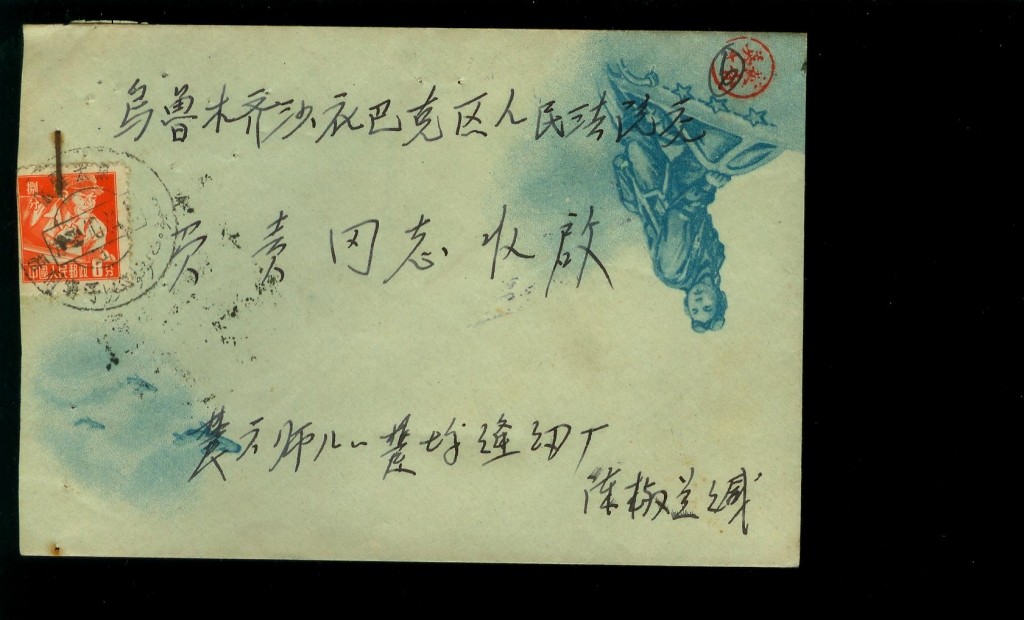 乌鲁木齐沙衣巴克区人民法院交
负责同志收啟
农六师八一农场缝纫厂
陈椒兰缄
捌分
中國人民郵政8分